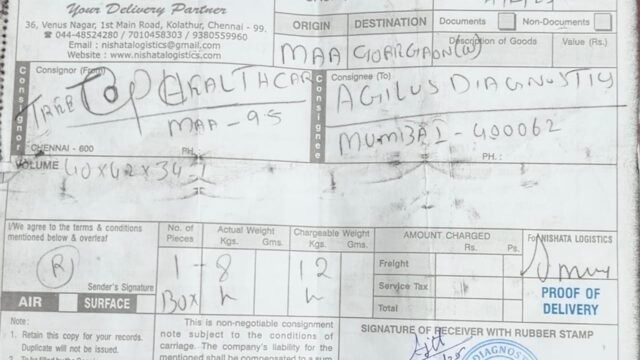 Your Delivery Partner
36, Venus Nagar, 1st Main Road, Kolathur, Chennai - 99.
☎ 044-48524280 / 7010458303 / 9380559960
Email : nishatalogistics@gmail.com
Website : www.nishatalogistics.com
ORIGIN
DESTINATION
Documents
Non-Documents
MAA
GOARGAON(W)
Description of Goods
Value (Rs.)
Consignor
Consignor (From)
TREE TOP HEALTHCAR
MAA - 95
CHENNAI - 600
PH.:
Consignee
Consignee (To)
AGILUS DIAGNOSTIC
MUMBAI - 400062
PH. :
VOLUME
40x42x34-1
I/We agree to the terms & conditions
mentioned below & overleaf
R
Sender's Signature
AIR
SURFACE
No. of
Pieces
1
BOX
Actual Weight
Kgs. Gms.
8
Chargeable Weight
Kgs. Gms.
12
AMOUNT CHARGED
Rs. Ps.
Freight
Service Tax
Total
For NISHATA LOGISTICS
PROOF OF
DELIVERY
Note :
1. Retain this copy for your records.
Duplicate will not be issued.
This is non-negotiable consignment
note subject to the conditions of
carriage. The company's liability for the
SIGNATURE OF RECEIVER WITH RUBBER STAMP